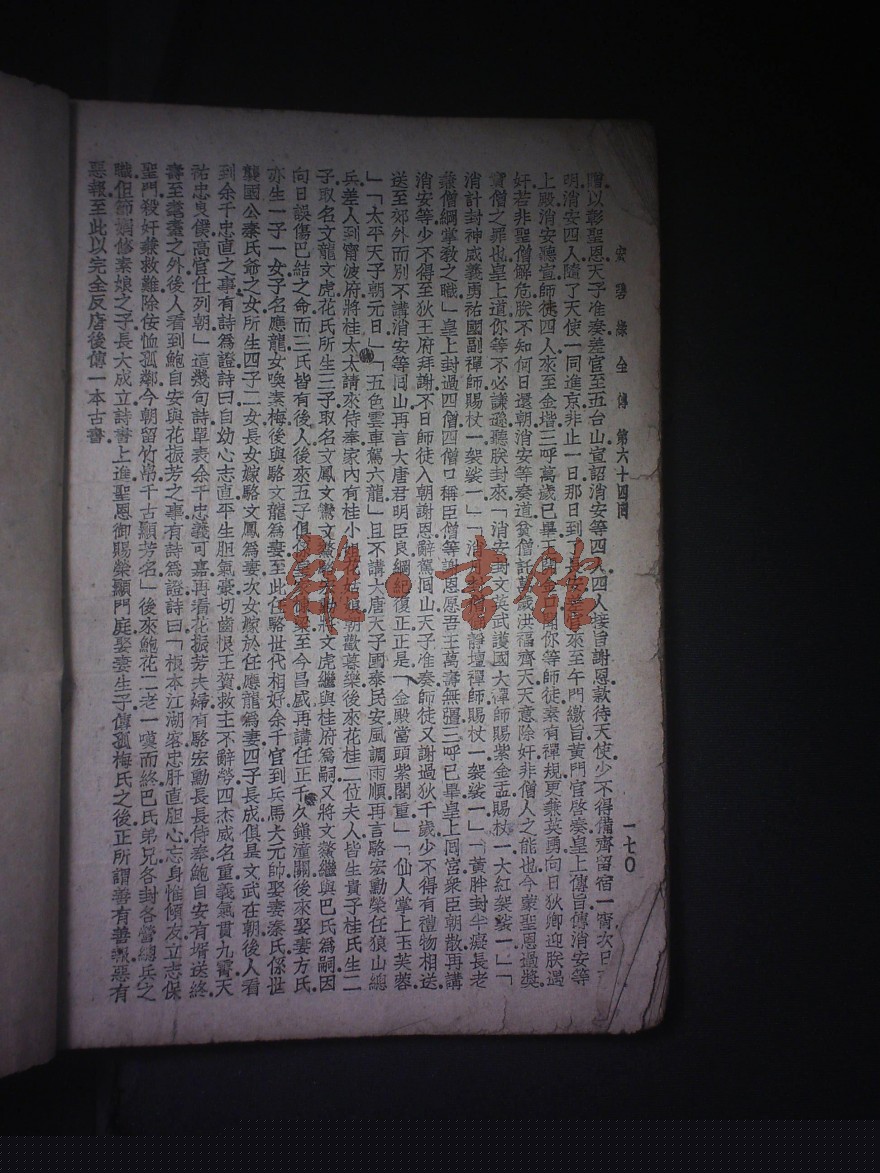 安碧緣全傳 第六十四囘
一七〇
贈以彰聖恩天子准奏差官至五台山宣詔消安等四人四人接旨謝恩款待天使少不得備齊留宿一宵次日
明消安四人隨了天使一同進京非止一日那日到了 來至午門繳旨黃門官啓奏皇上傳旨傳消安等
上殿消安聽宣師徒四人來至金堦三呼萬歲已畢 你等師徒素有禪規更兼英勇向日狄卿迎朕遇
奸若非聖僧解危朕不知何日還朝消安等奏道貧僧託萬歲洪福齊天天意除奸非僧人之能也今蒙聖恩過獎
實僧之罪也皇上道你等不必謙遜聽朕封來「消安封文 武護國大禪師賜紫金盂賜杖一大紅袈裟一」「
消計封神威義勇祐國副禪師賜杖一袈裟一」「消 靜壇禪師賜杖一袈裟一」「黃胖封半癡長老
兼僧綱掌教之職」皇上封過四僧四僧口稱臣僧等謝恩愿吾王萬壽無疆三呼已畢皇上囘宮衆臣朝散再講
消安等少不得至狄王府拜謝不日師徒入朝謝恩辭駕囘山天子准奏師徒又謝過狄千歲少不得有禮物相送
送至郊外而別不講消安等囘山再言大唐君明臣良綱紀復正正是「金殿當頭紫閣重」「仙人掌上玉芙蓉
」「太平天子朝元日」「五色雲車駕六龍」且不講大唐天子國泰民安風調雨順再言駱宏勳榮任狼山總
兵差人到甯波府將桂太太請來侍奉家內有桂小姐花姑娘朝歡暮樂後來花桂二位夫人皆生貴子桂氏生二
子取名文龍文虎花氏所生三子取名文鳳文鸞文鰲駱宏勳將文虎繼與桂府爲嗣又將文鰲繼與巴氏爲嗣因
向日誤傷巴結之命而三氏皆有後人後來五子俱 至今昌盛再講任正千久鎭潼關後來娶妻方氏
亦生一子一女子名應龍女喚素梅後與駱文龍爲妻至此任駱世代相好余千官到兵馬大元帥娶妻秦氏係世
襲國公秦氏爺之女所生四子二女長女嫁駱文鳳爲妻次女嫁於任應龍爲妻四子長成俱是文武在朝後人看
到余千忠直之事有詩爲證詩曰自幼心志直平生胆氣豪切齒恨王賀救主不辭勞四杰威名重義氣貫九霄天
祐忠叟僕高官仕列朝」這幾句詩單表余千忠義可嘉再看花振芳夫婦有駱宏勳長長侍奉鮑自安有壻送終
壽至耄耋之外後人看到鮑自安與花振芳之事有詩爲證詩曰「根本江湖客忠肝直胆心忘身惟傾友立志保
聖門殺奸兼救難除佞恤孤鄰今朝留竹帛千古顯芳名」後來鮑花二老一嘆而終巴氏弟兄各封各營總兵之
職但節婦修素娘之子長大成立詩書上進聖恩御賜榮顯門庭娶妻生子傳孤梅氏之後正所謂善有善報惡有
惡報至此以完全反唐後傳一本古書
雜·書館